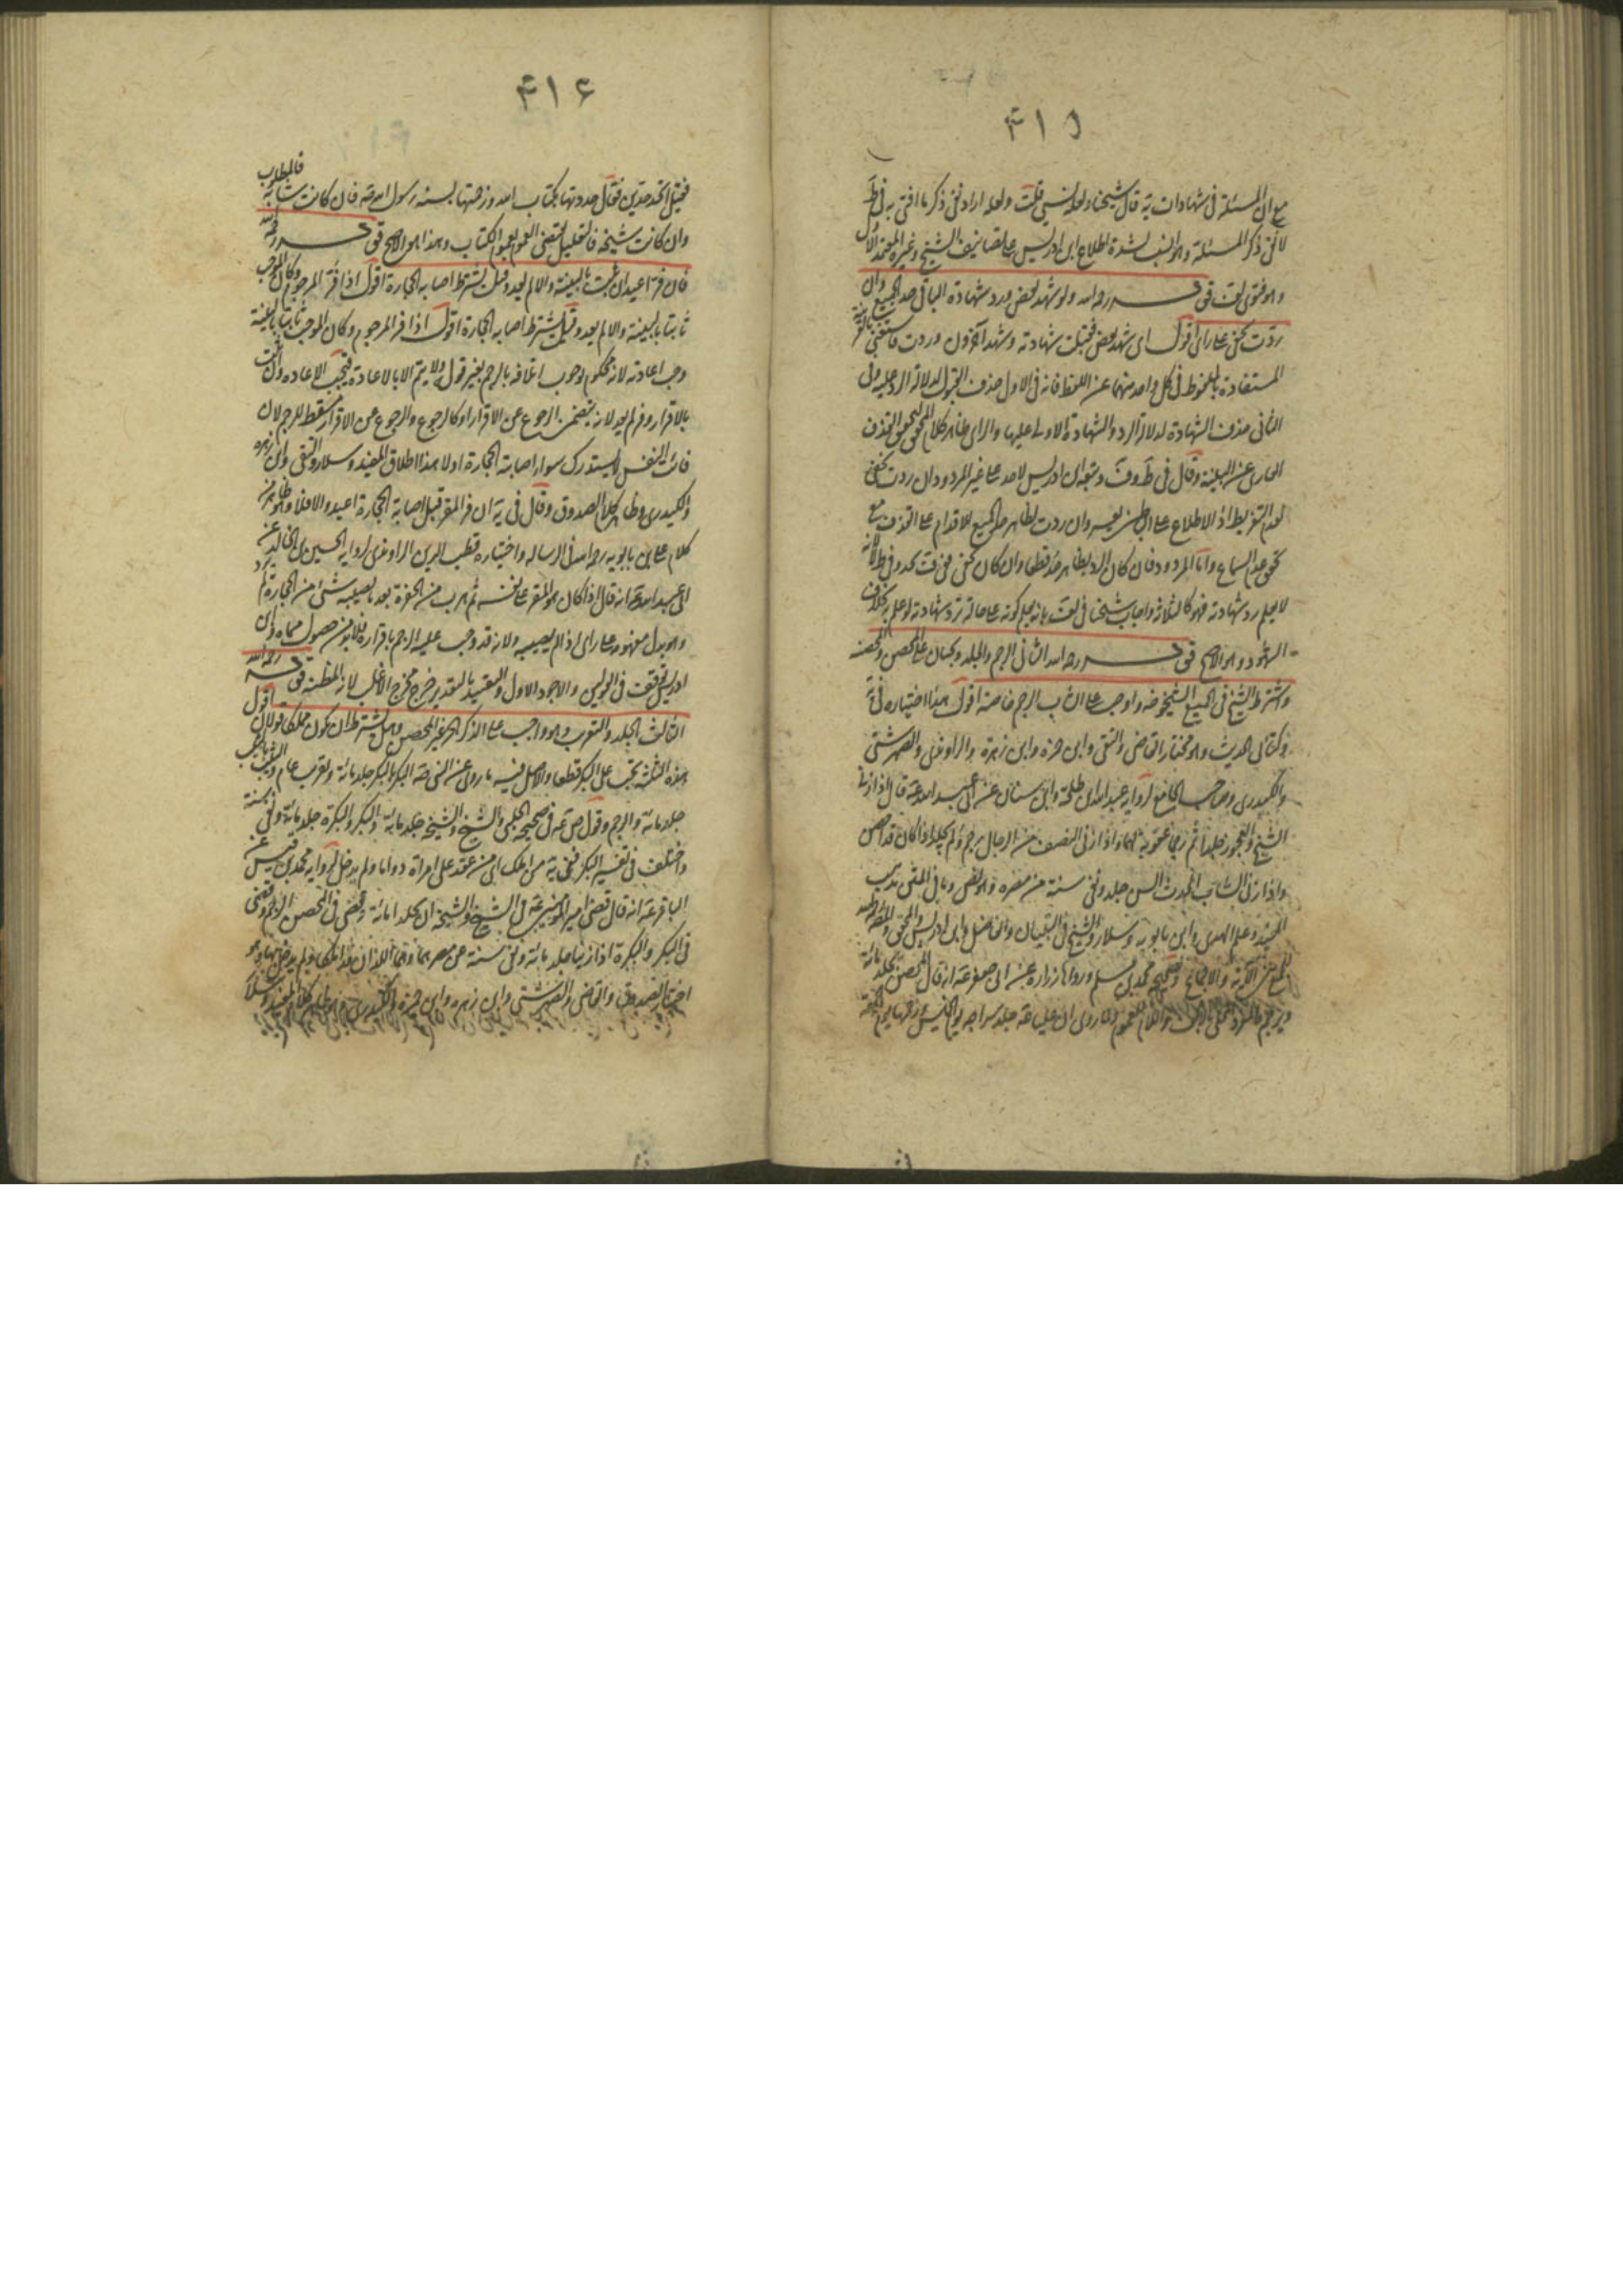 ٤١٥
مع ان المسئلة فى شهادات ية قال شيخنا ولعله نسي قلت ولعله اراد نفى ذكر ما افتى به فى ط
لا نفى ذكر المسئلة وهو انسب لشدة اطلاع ابن ادريس على تصانيف الشيخ وغيره المعتمد الاول
وهو فتوى لف قوله رحمه الله ولو شهد بعض وردت شهادة الباقى حد الجميع وان
ردت بخفى على راى اقول اى شهد بعض فقبلت شهادته وشهد آخرون وردت فاستغنى بالقرينة
المستفادة بالملحوظ فى كل واحد منهما عن اللفظ فانه فى الاول حذف القبول لدلالة الرد عليه وفى
الثانى حذف الشهادة لدلالة الرد والشهادة الاولى عليها والراى ظاهر كلام المحقق لتحقق القذف
العارى عن البينة وقال فى ط وف وتبعه ابن ادريس لا حد على غير المردود ان ردت بخفى
لعدم التفريط اذ الاطلاع على البواطن يعسر وان ردت بظاهر حد الجميع للاقدام على القذف مع
تحقق عدم السماع واما المردود فان كان الرد بظاهر حد قطعا وان كان بخفى ففى ف يحد وفى ط لا لانه
لا يعلم رد شهادته فهو كالثلاثة واجاب شيخنا فى لف بانه يعلم كونه على حالة ترد شهادته لو علم بها بخلاف
الشهود وهو الاصح قوله رحمه الله الثانى الرجم والجلد ويجبان على المحصن والمحصنة
واشترط الشيخ فى الجميع الشيخوخة واوجب على الشاب الرجم خاصة اقول هذا اختياره فى ية
وكتابى الحديث وهو مختار القاضى والتقى وابن حمزة وابن زهرة والراوندى والصهرشتى
والكيدرى وصاحب الجامع لرواية عبد الله بن طلحة وابن سنان عن ابى عبد الله ع قال اذا زنا
الشيخ والعجوز جلدا ثم رجما عقوبة لهما واذا زنى النصف من الرجال رجم ولم يجلد اذا كان قد احصن
واذا زنى الشاب الحدث السن جلد ونفى سنة من مصره وهو نص وباقى المتن مذهب
المفيد وعلم الهدى وابن بابويه وسلار والشيخ فى التبيان والفاضل وابن ادريس والمحقق والمصنف
الآية والاجماع وصحيح محمد بن مسلم ورواها زرارة عن ابى جعفر ع انه قال المحصن يجلد مائة
ويرجم واللام للعموم ولما روى ان عليا ع جلد سراجة يوم الخميس ورجمها يوم الجمعة
٤١٦
فقيل اتحد حدين فقال حددتها بكتاب الله ورجمتها بسنة رسول الله ص فان كانت شابة فالمطلوب
وان كانت شيخة فالتعليل مقتضى العموم لعموم الكتاب وهذا هو الاصح قوله رحمه الله
فان فر اعيد ان ثبت بالبينة والا لم يعد وقيل يشترط اصابة الحجارة اقول اذا فر المرجوم وكان الموجب
ثابتا بالبينة والا لم يعد وقيل يشترط اصابة الحجارة اقول اذا فر المرجوم وكان الموجب ثابتا بالبينة
وجب اعادته لانه محكوم بوجوب اتلافه بالرجم بغير قوله ولا يتم الا بالاعادة فتجب الاعادة وان ثبت
بالاقرار وفر لم يعد لانه يتضمن الرجوع عن الاقرار او كالرجوع والرجوع عن الاقرار مسقط للرجم لان
فائت النفس لا يستدرك سواء اصابته الحجارة او لا هذا اطلاق المفيد وسلار والتقى وابن زهرة
والكيدرى وظاهر كلام الصدوق وقال فى ية ان فر المقر قبل اصابة الحجارة اعيد والا فلا وهو ظاهر من
كلام على بن بابويه رحمه الله فى الرسالة واختاره قطب الدين الراوندى لرواية الحسين بن خالد عن
ابى عبد الله ع انه قال اذا كان هو المقر على نفسه ثم هرب من الحفرة بعد ما يصيبه شئ من الحجارة لم يرد
وهو يدل بمفهومه على راى اذا لم يصبه ولانه قد وجب عليه الرجم باقراره فلا بد من حصول مسماه وابن
ادريس توقف فى القولين والاجود الاول والتقييد بالتعدد خرج مخرج الاغلب لانه المظنة قوله رحمه الله
الثالث الجلد والتغريب وهو واجب على الذكر الحر غير المحصن وهل يشترط ان يكون مملكا قولان اقول
هذه الثلثة تجب على البكر قطعا والاصل فيه ما روى عن النبى ص البكر بالبكر جلد مائة وتغريب عام والثيب بالثيب
جلد مائة والرجم وقول ص ع فى صحيحة الحلبى والشيخ والشيخة جلد مائة والبكر والبكرة جلد مائة ونفى سنة
واختلف فى تفسير البكر ففى ية من املك اى من عقد على امراة دواما ولم يدخل لرواية محمد بن قيس عن
الباقر ع انه قال قضى امير المؤمنين ع فى الشيخ والشيخة ان يجلدا مائة وقضى فى المحصن الرجم وقضى
فى البكر والبكرة اذا زنيا جلد مائة ونفى سنة فى غير مصرهما وهما اللذان قد املكا ولم يدخل بها وهو
اختيار الصدوق والقاضى والصهرشتى وابن زهرة وابن حمزة والكيدرى وهو ظاهر كلام المفيد وسلار